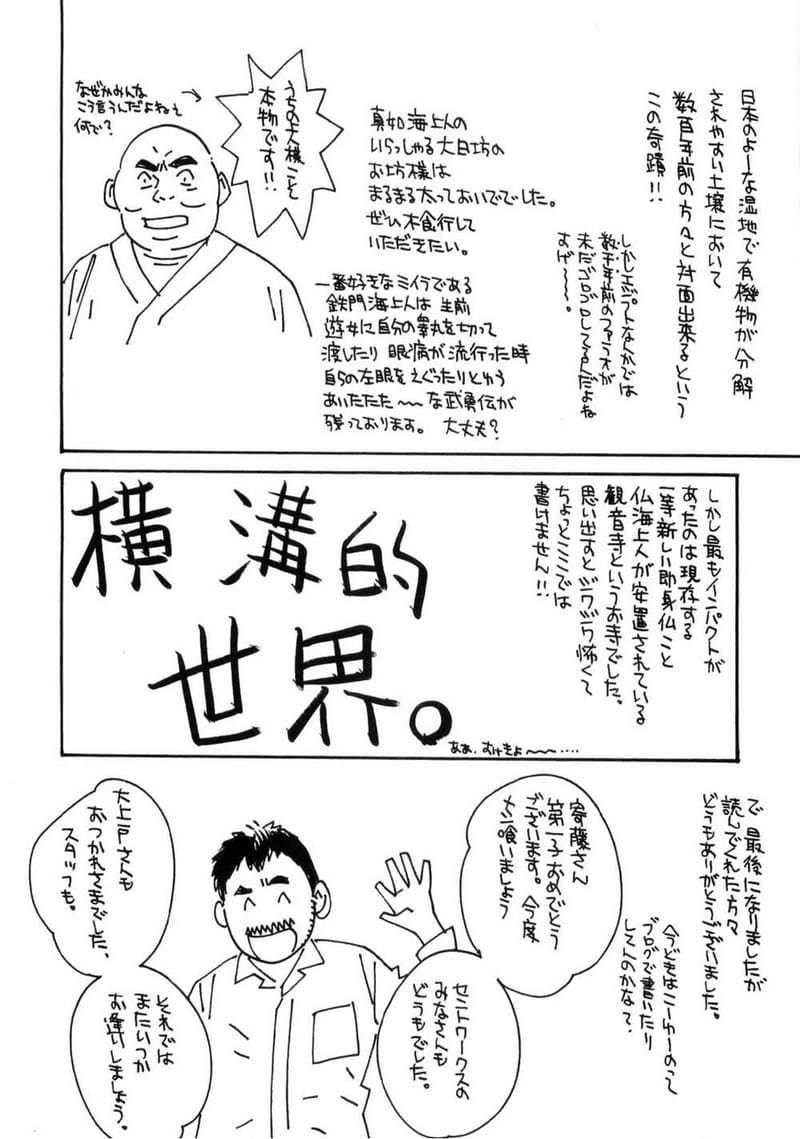 日本のよーな湿地で有機物が分解
されやすい土壌において
数百年前の方々と対面出来るという
この奇蹟!!
しかしエジプトなんかでは
数千年前のファラオが
未だゴロゴロしてるんだよね
すげ〜〜〜。
真如海上人の
いらっしゃる大日坊の
お坊様は
まるまる太っておいででした。
ぜひ木食行して
いただきたい。
うちの大様こと
本物です!!
なぜかみんな
こう言うんだよねぇ
何で?
一番好きなミイラである
鉄門海上人は生前
遊女に自分の睾丸を切って
渡したり 眼病が流行った時
自らの左眼をえぐったりとゆう
あいたたた〜〜な武勇伝が
残っております。 大丈夫?
しかし最もインパクトが
あったのは現存する
一等新しい即身仏こと
仏海上人が安置されている
観音寺というお寺でした。
思い出すとジワジワ怖くて
ちょっとここでは
書けません!!
横溝的
世界。
ああ、むげきょ〜〜〜・・・・
で 最後になりましたが
読んでくれた方々
どうもありがとうございました。
今どきはこーゆーのって
ブログで書いたり
してんのかな?
寄藤さん
第一子おめでとう
ございます。今度
メシ喰いましょう
セントワークスの
みなさんも
どうもでした。
大上戸さんも
おつかれさまでした、
スタッフも。
それでは
またいつか
お逢いしましょう。